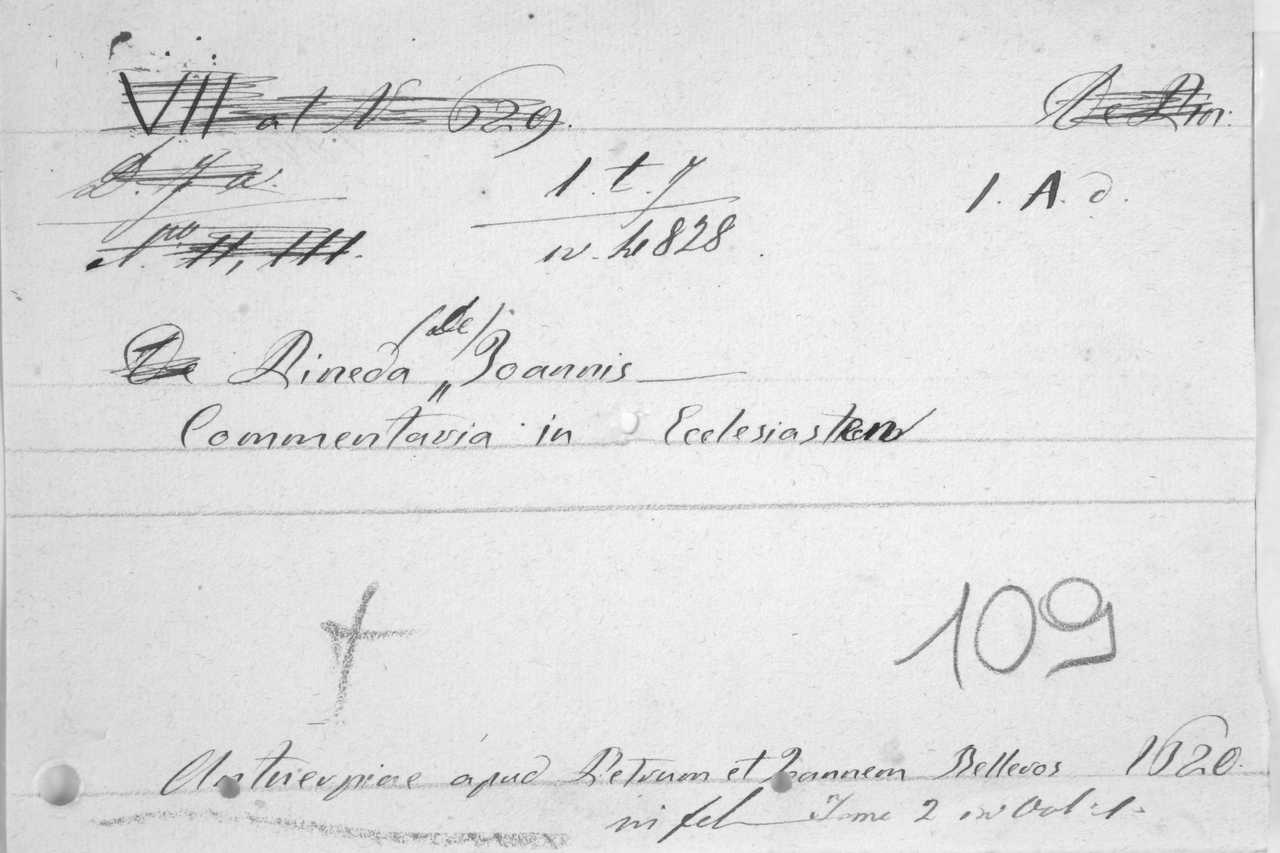 VII al N 629.
De Pin:
D. 7 a.
1. t. 7
1. A. d.
N.ro II, III.
in. 828.
De Pineda (de) Joannis
Commentaria in Ecclesiasten
109
Antuerpiae apud Petrum et Joannem Belleros 1620.
in fol Tome 2 in Vol. 1.